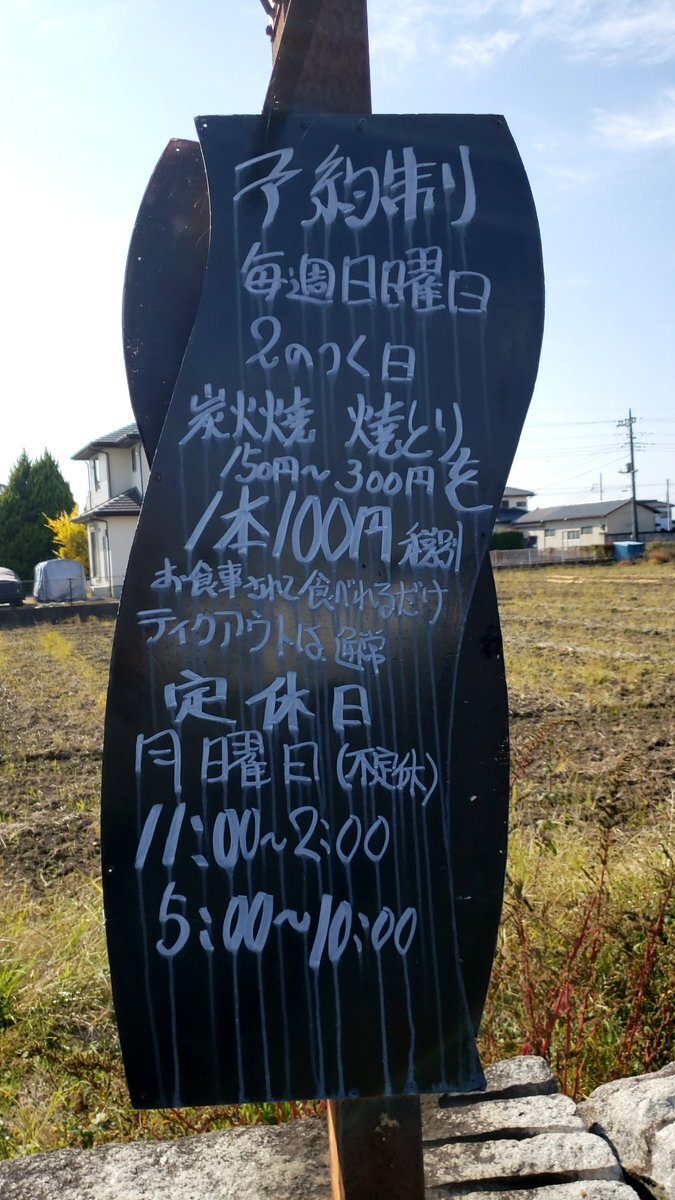 予約制
毎週日曜日
2のつく日
炭火焼 焼とりを
150円～300円
1本100円 税別
お食事されて食べれるだけ
テイクアウトは、通常
定休日
月曜日(不定休)
11:00～2:00
5:00～10:00